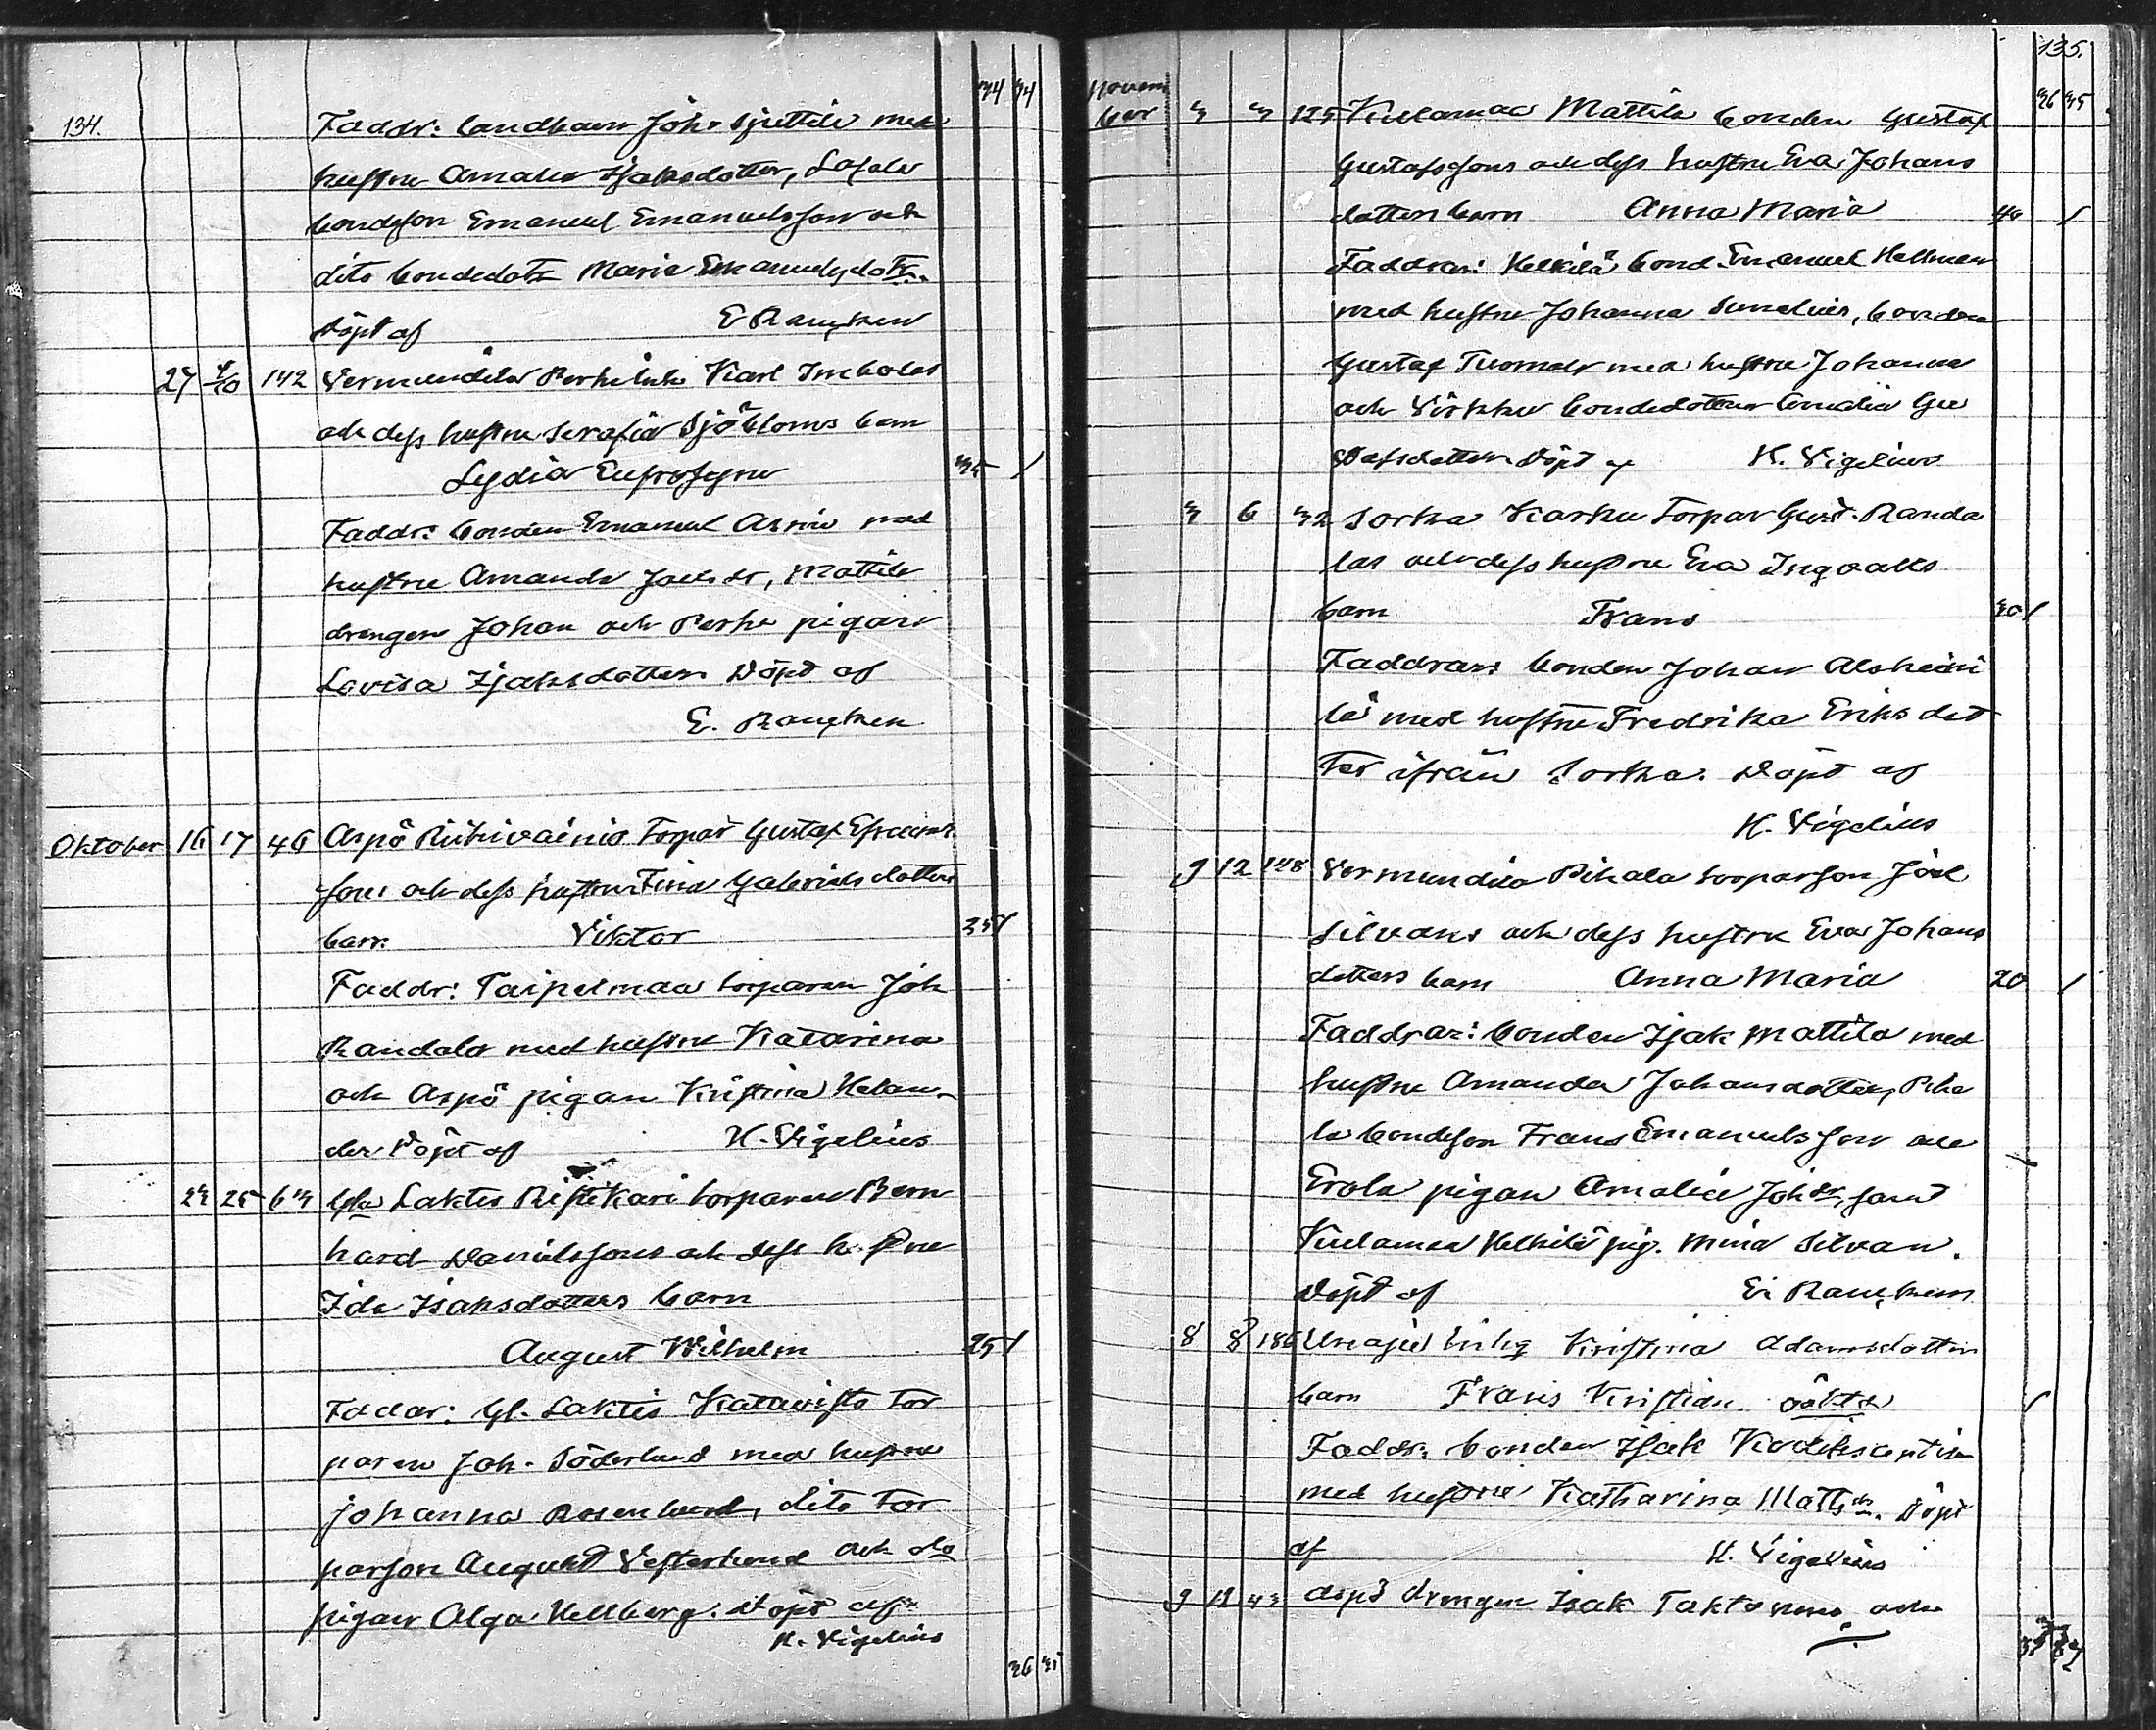 134.
34 34
Faddr: landbonr Joh. Sjuttile med
hustru Amalia Isaksdotter,
bondeson Emanuel Emanuelsson och
dito bondedotr Maria Emanuelsdotr.
döpt af E Rancken
27 4/10 142 Vermundila Perkiln Karl Imbolas
och dess hustru Serafia Sjöbloms barn
Lydia Eufrosyne 35 /
Faddr: bonden Emanuel med
hustru Amanda, Mattila
drengen Johan och Perho pigan
Lovisa Isaksdotter. Döpt af
E. Rancken
Oktober 16 17 46 Aspö Riihivainio Torpar Gustaf Efraims
sons och dess hustru Fina Gabrielsdotters
barn Viktor 35 /
Faddr: Taipelmaa torparen Joh
Randala med hustru Katarina
och Aspö pigan Kristina Helan-
der Döpt af H. Vigelius
23 25 63 Gla Laktis Ristikari torparen Bern
hard Danielssons och dess hustru
Ida Isaksdotters barn
August Wilhelm 25 /
Fadar: Gl. Laktis Katavisto tor
paren Joh. Söderlund med hustru
Johanna Rosenlund, dito tor
parson August Vesterlund och do
pigan Alga Hellberg. Döpt af
H. Vigelius
36 35
135.
36 35
Novem
ber 3 3 125 Kiulamaa Mattila bonden Gustaf
Gustafssons och dess hustru Eva Johans
dotters barn Anna Maria 40 /
Faddrar: Heikilä bond. Emanuel Hellman
med hustru Johanna Sunelius, bonden
Gustaf Tuomala med hustru Johanna
och Sirkku bondedotter Amalia Gu
stafsdotter. Döpt af H. Vigelius
3 6 32 Sorka Karhu Torpar Gust. Randa
las och dess hustru Eva Ingvalls
barn Frans 30 /
Faddrar: bonden Johan Alsheiki
lä med hustru Fredrika Eriksdot
ter ifrån Sorka. Döpt af
H. Vigelius
9 12 148 Vermundila Pihala torparson Joel
Silvans och dess hustru Eva Johans
dotters barn Anna Maria 20 /
Faddrar: bonden Isak Mattila med
hustru Amanda Johansdotter, Piha
la bondeson Frans Emanuelsson och
Erola pigan Amalia Johdr, samt
Kiulamaa Heikilä pig. Mina Silvan.
Döpt af E. Rancken
8 8 186 Unaja Inhy Kristina Adamsdotters
barn Frans Kristian. oäkta /
Faddr: bonden Isak
med hustru Katharina Mattsdr. Döpt
af H. Vigelius
9 11 43 Aspö drengen Isak Taktonens och